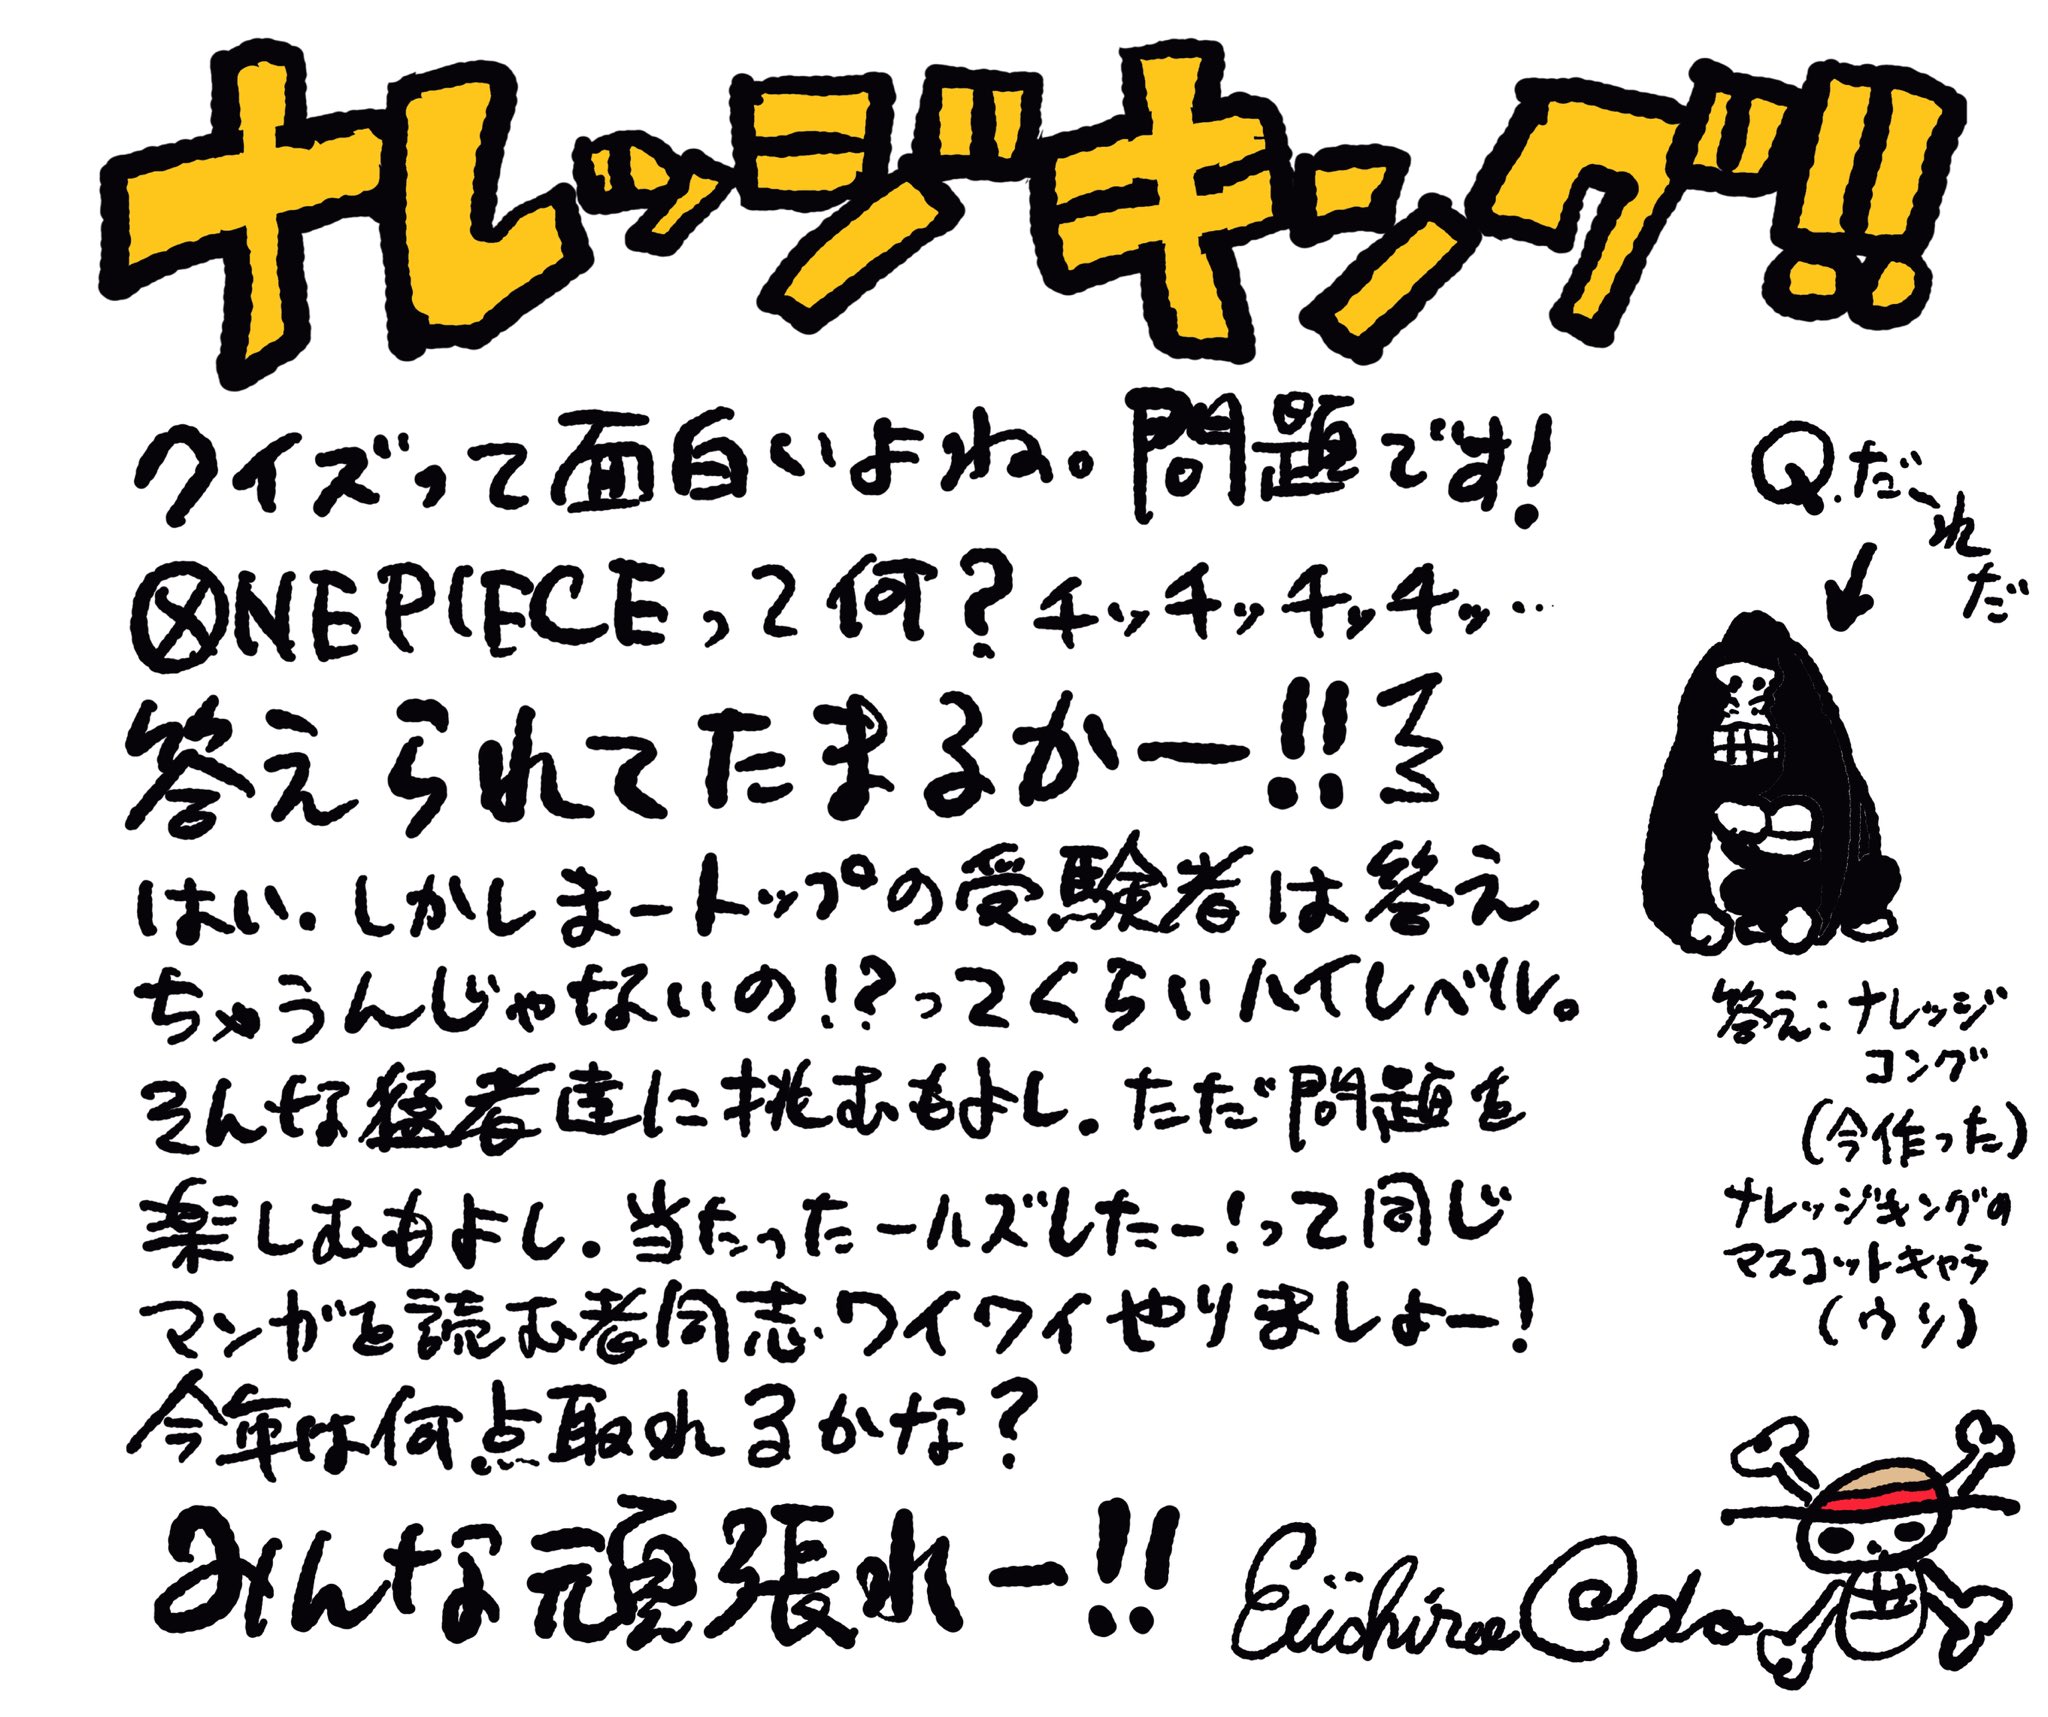 ナレッジキング!!
クイズって面白いよね。問題です!
ONE PIECEって何?チッチッチッチッ…
答えられてたまるかー!!ミ
はい.しかしまートップの受験者は答え
ちゃうんじゃないの!?ってくらいハイレベル。
そんな猛者達に挑むもよし.ただ問題を
楽しむもよし.当たったールズしたー!って同じ
マンガを読む者同志ワイワイやりましょー!
今年は何点取れるかな?
みんな頑張れー!!
Eiichiro Oda
Q.だ〜れだ
答え:ナレッジ
コング
(今作った)
ナレッジキングの
マスコットキャラ
(ウソ)